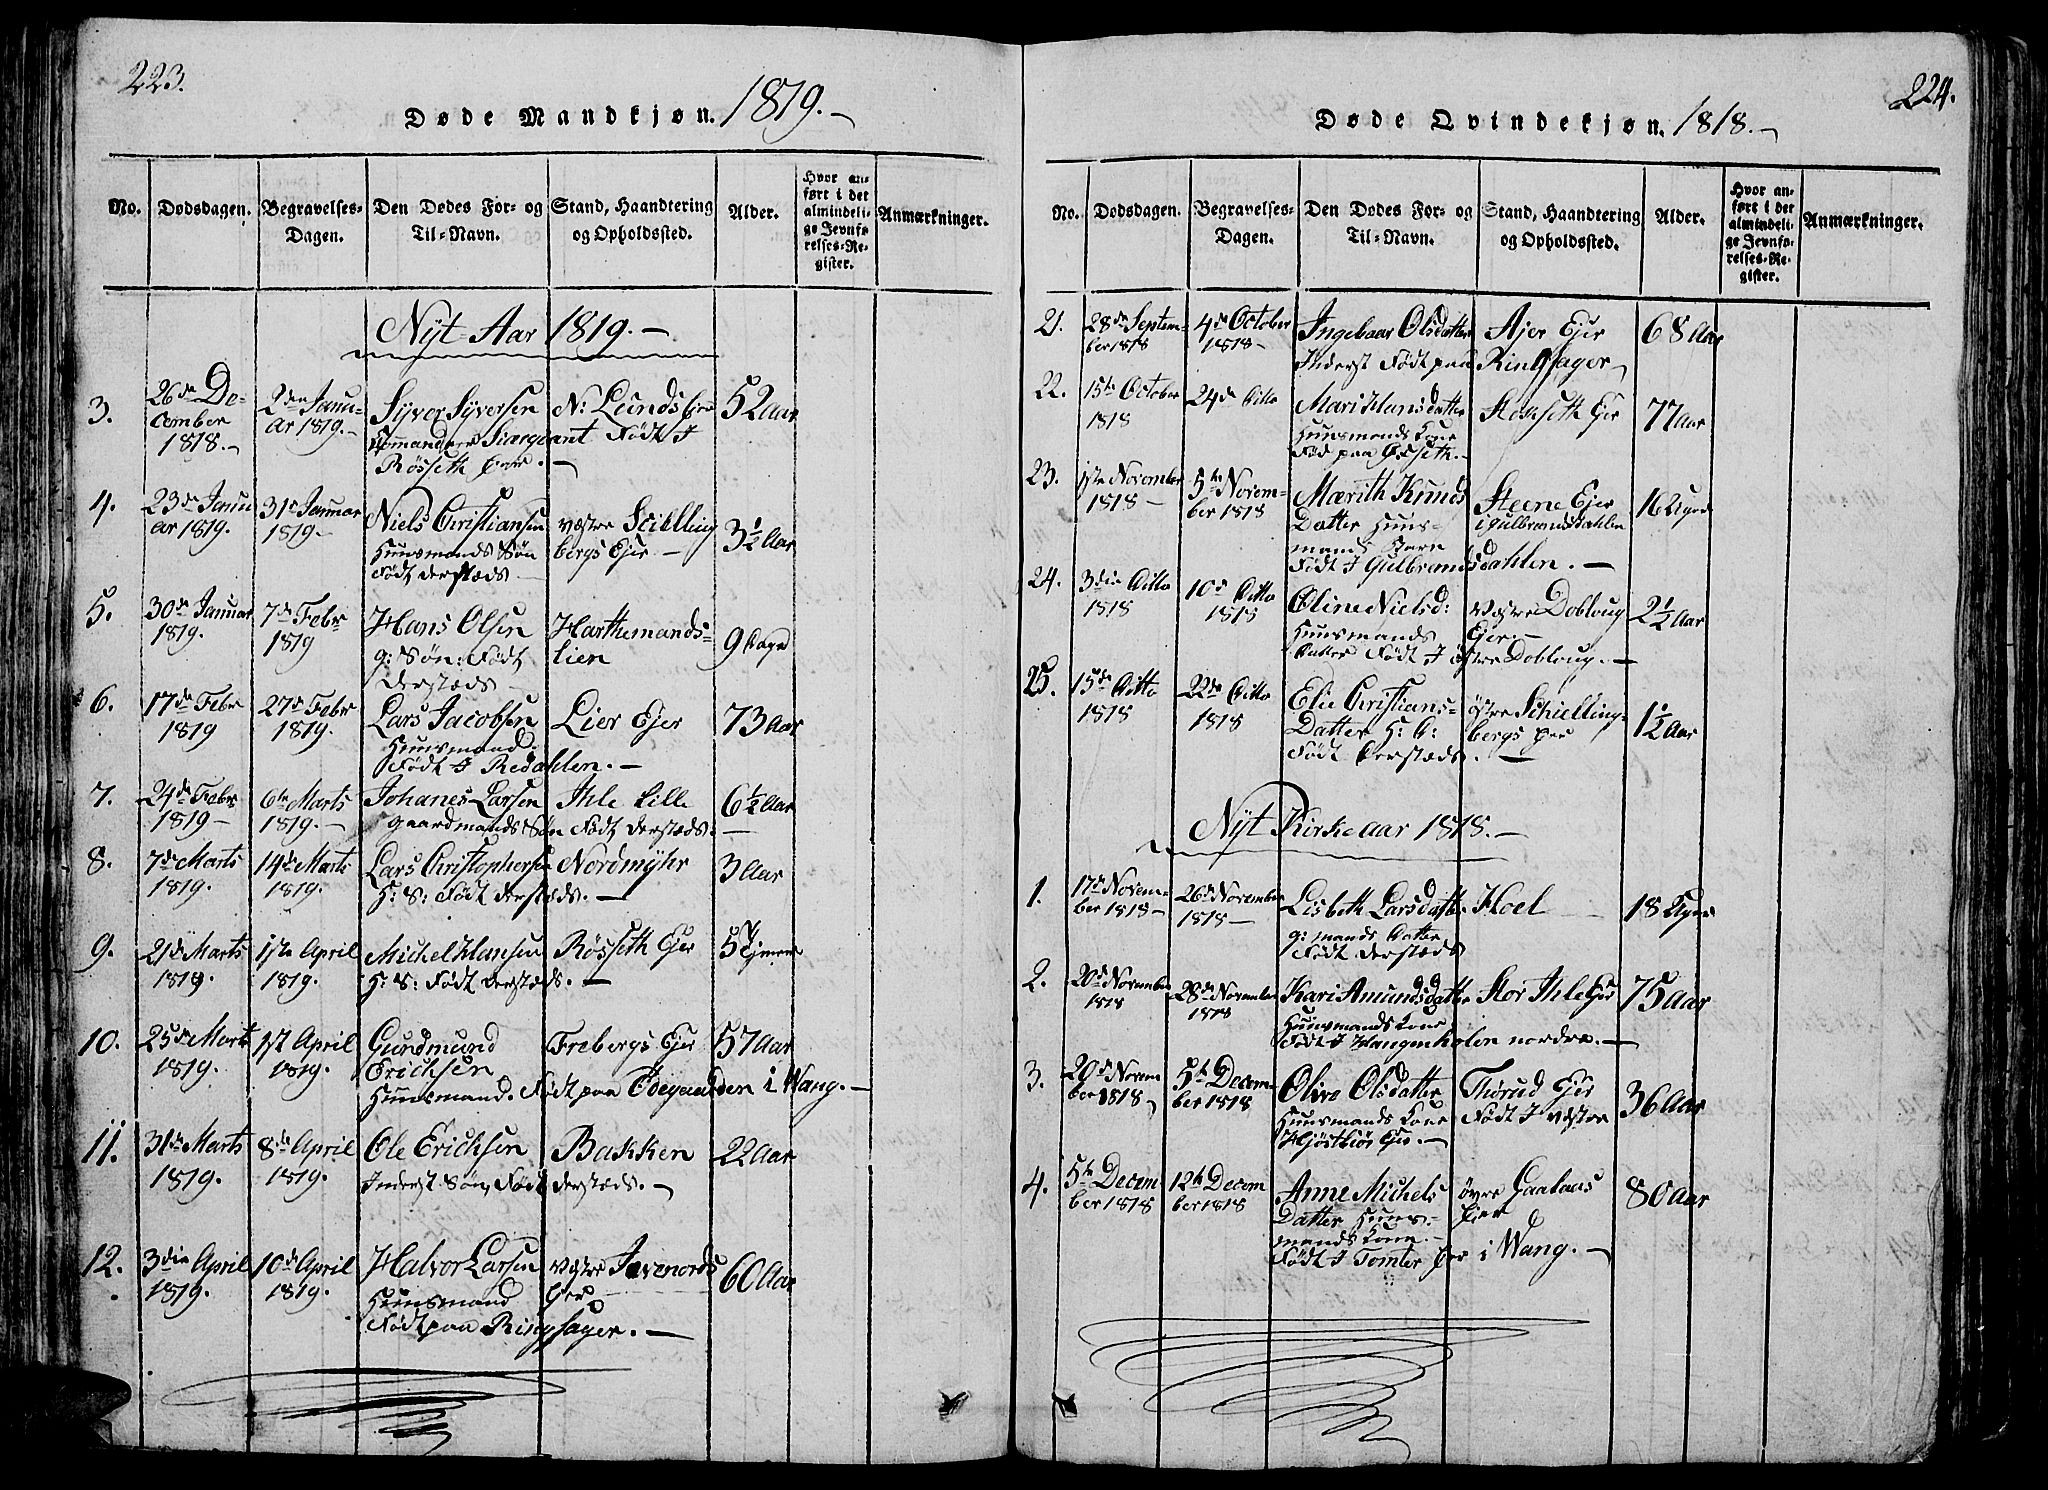 223.
Døde Mandkjøn. 1819.
No.
Dødsdagen.
Begravelses-Dagen.
Den Dødes For- og Til-Navn.
Stand, Haandtering og Opholdssted.
Alder.
Hvor anført i det almindelige Jevnførelses-Register.
Anmærkninger.
Nÿt Aar 1819.
3. 26de December 1818. 2den Januar 1819. Syver Syversen N: Lunds Ejer 52 Aar
Commandeer Siærgiant Født I
Røsseth Ejer.
4. 23de Januar 1819. 31te Januar 1819. Niels Christiansen væstre Schielling bergs Ejer 3½ Aar
Huusmands Søn
Født derstæds
5. 30de Januar 1819. 7de Febr 1819 Hans Olsen Harthemands= lien 9 Dage
g: Søn: Født
derstæds
6. 17de Febr 1819 27de Febr 1819. Lars Jacobsen Lier Ejer 73 Aar
Huusmand.
Født I Redahlen.
7. 24de Febr 1819 6te Marts 1819. Johanes Larsen Ihle lille 6½ Aar
gaardmands Søn Født derstæds.
8. 7de Marts 1819. 14de Marts 1819. Lars Christophersen Nordmÿhr 3 Aar
H: S: Født derstæds.
9. 21de Marts 1819. 1ste April 1819. Michel Hansen Røsseth Ejer 5
H: S: Født derstæds.
10. 25de Marts 1819. 1st April 1819. Gundmund Erichsen Frebergs Ejer 57 Aar
Huusmand. Født paa Ødegaarden i Wang.
11. 31te Marts 1819. 8de April 1819. Ole Erichsen Bakken 22 Aar
Inderst Søn, Født derstæds.
12. 3die April 1819. 10de April 1819. Halvor Larsen væstre Jevenords Ejer 60 Aar
Huusmand
Født paa Ringsager.
224.
Døde Qvindekjøn. 1818.
No.
Dødsdagen.
Begravelses-Dagen.
Den Dødes For- og Til-Navn.
Stand, Haandtering og Opholdssted.
Alder.
Hvor anført i det almindelige Jevnførelses-Register.
Anmærkninger.
21. 28de September 1818 4de October 1818 Ingebaar Olsdatter Ajer Ejer 68 Aar
Inderst Født paa Ringsager
22. 15de October 1818 24de Ditto Mari Hansdatter Ejer 77 Aar
Huusmands Kone
Fød paa
23. 1ste November 1818 5te November 1818 Marith Knuds Datter Steene Ejer i gulbrandsdahlen 16 Uger
Huus=
mands Barn
Født I Gulbrandsdahlen.
24. 3die Ditto 1818 10de Ditto 1818 Oline Nielsd: væstre Dobloug Ejer 2½ Aar
Huusmands
Datter Født I østre Dobloug.
25. 15de Ditto 1818 22de Ditto 1818 Elie Christians= Datter H: D: østre Schielling= bergs Ejer 1½ Aar
Født derstæds.
Nÿt Kirke aar 1818.
1. 17de November 1818 26de November 1818 Lisbeth Larsdatter Hoel 18 Uger
g: mands Datter
Født derstæds
2. 20de November 1818 28de November 1818 Kari Amundsdatter Stor Ihle Ejer 75 Aar
Huusmands Kone
Født I Hangenholen nordre.
3. 20de November 1818 5te December 1818 Olive Olsdatter Thørud Ejer 36 Aar
Huusmands Kone Født I væstre
Hjøstbiør Ejer.
4. 5te December 1818 12te December 1818 Anne Michels Datter øvre Gaalaas Ejer 80 Aar
Huus=
mands Kone.
Født I Tomter Ejer i Wang.